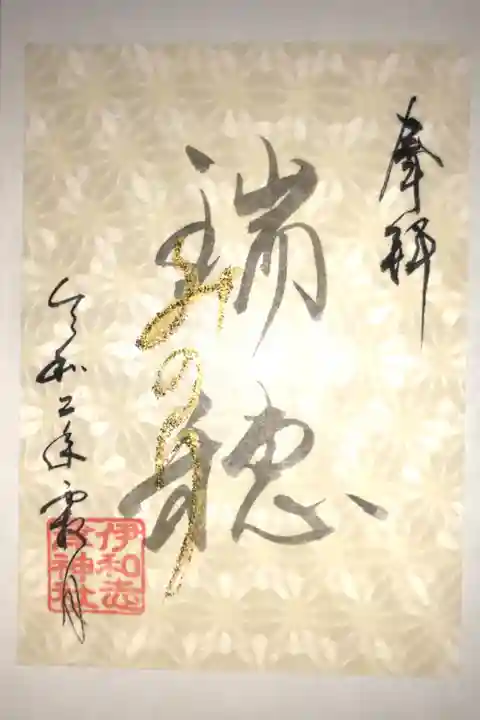 奉拝
瑞穂
みのり
令和二年霜月
伊和志
津神社